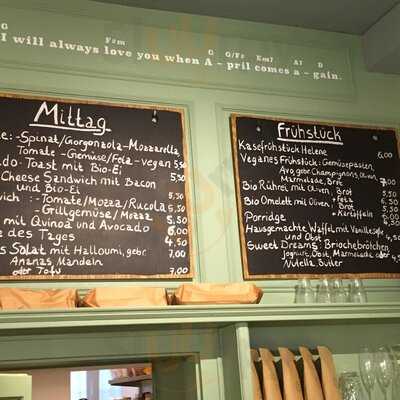 G F#m G G/F# Em7 A7 D
I will always love you when A - pril comes a - gain.
Mittag
e: - Spinat/Gorgonzola-Mozzarella
Tomate - Gemüse/Feta - vegan 5,50
do-Toast mit Bio-Ei 5,50
Cheese Sandwich mit Bacon
und Bio-Ei 5,50
wich :- Tomate/Mozza/Rucola 5,50
- Grillgemüse/Mozza 5,50
mit Quinoa und Avocado 6,00
e des Tages 4,50
s Salat mit Halloumi, gebr. 7,00
Ananas, Mandeln
oder Tofu 7,00
Frühstück
Käsefrühstück Helene 6,00
Veganes Frühstück: Gemüsepasten,
Avo, gebr. Champignons, Oliven,
Marmelade, Brot 7,00
Bio Rührei mit Oliven, Brot 4,50
Bio Omelett mit Oliven, + Feta 5,50
+ Brot
+ Kartoffeln 6,00
Porridge 4,50
Hausgemachte Waffel mit Vanillesoße
und Obst 4,50
Sweet Dreams: Briochebrötchen,
Joghurt, Obst, Marmelade oder
Nutella, Butter